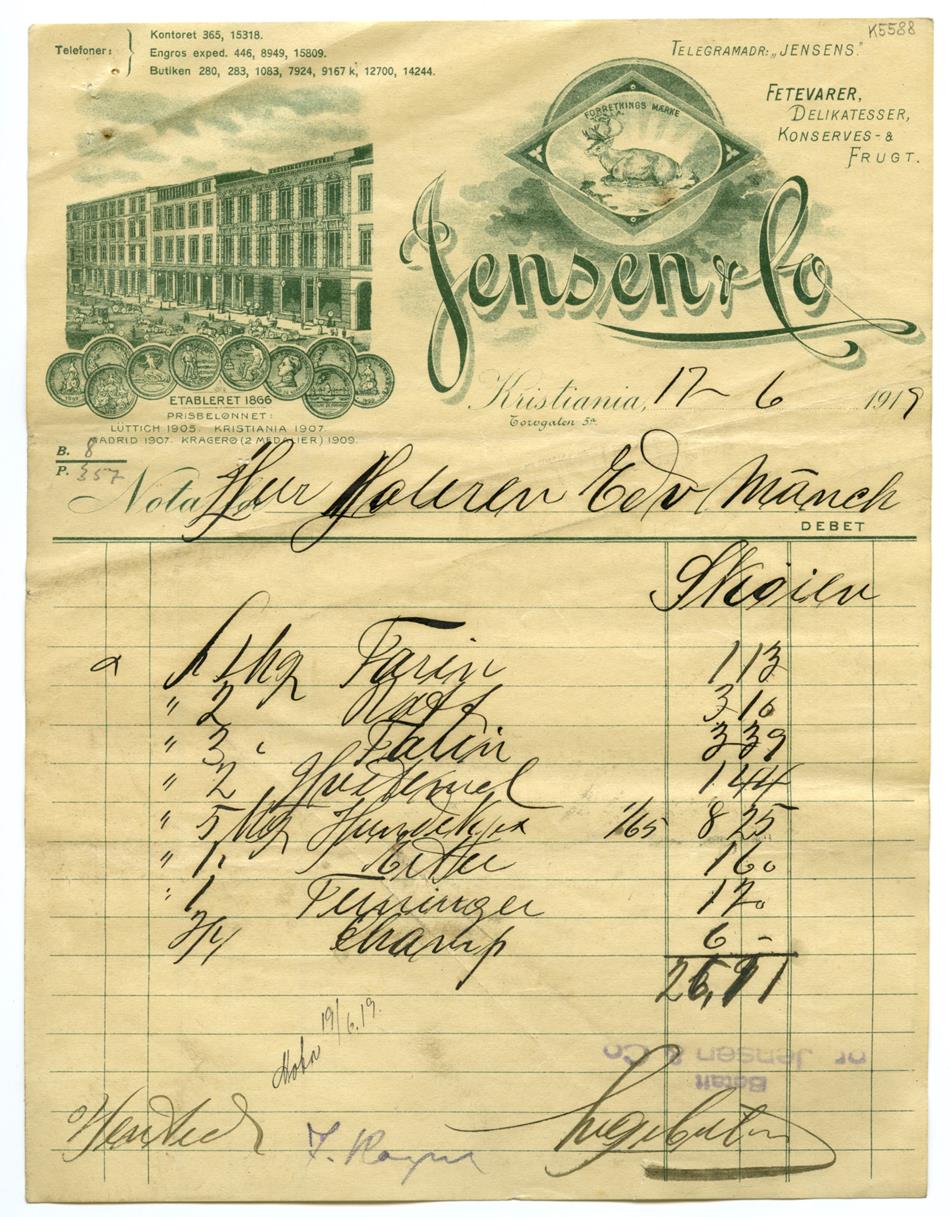 K5588
Telefoner:
Kontoret 365, 15318.
Engros exped. 446, 8949, 15809.
Butiken 280, 283, 1083, 7924, 9167 k, 12700, 14244.
TELEGRAMADR: „JENSENS."
FORRETNINGS MÆRKE
FETEVARER,
DELIKATESSER,
KONSERVES- &
FRUGT.
Jensen & Co
ETABLERET 1866
PRISBELØNNET:
LÜTTICH 1905. KRISTIANIA 1907.
MADRID 1907. KRAGERØ (2 MEDALIER) 1909.
Kristiania, 17 - 6 1919
Torvgaten 5a
B. 8
P. 357
Nota for Herr Maleren Edv Münch
DEBET
Skøien
1 kg Farin 1 13
" 2 3 10
" 3 " Farin 3 39
" 2 Hvedemel 1 44
" 5 kg Hundekjex 1/65 8 25
" 1 " 1 60
" 1 1 20
3/4 Champ 6 -
26,91
19/6.19.
Betalt
pr Jensen & Co